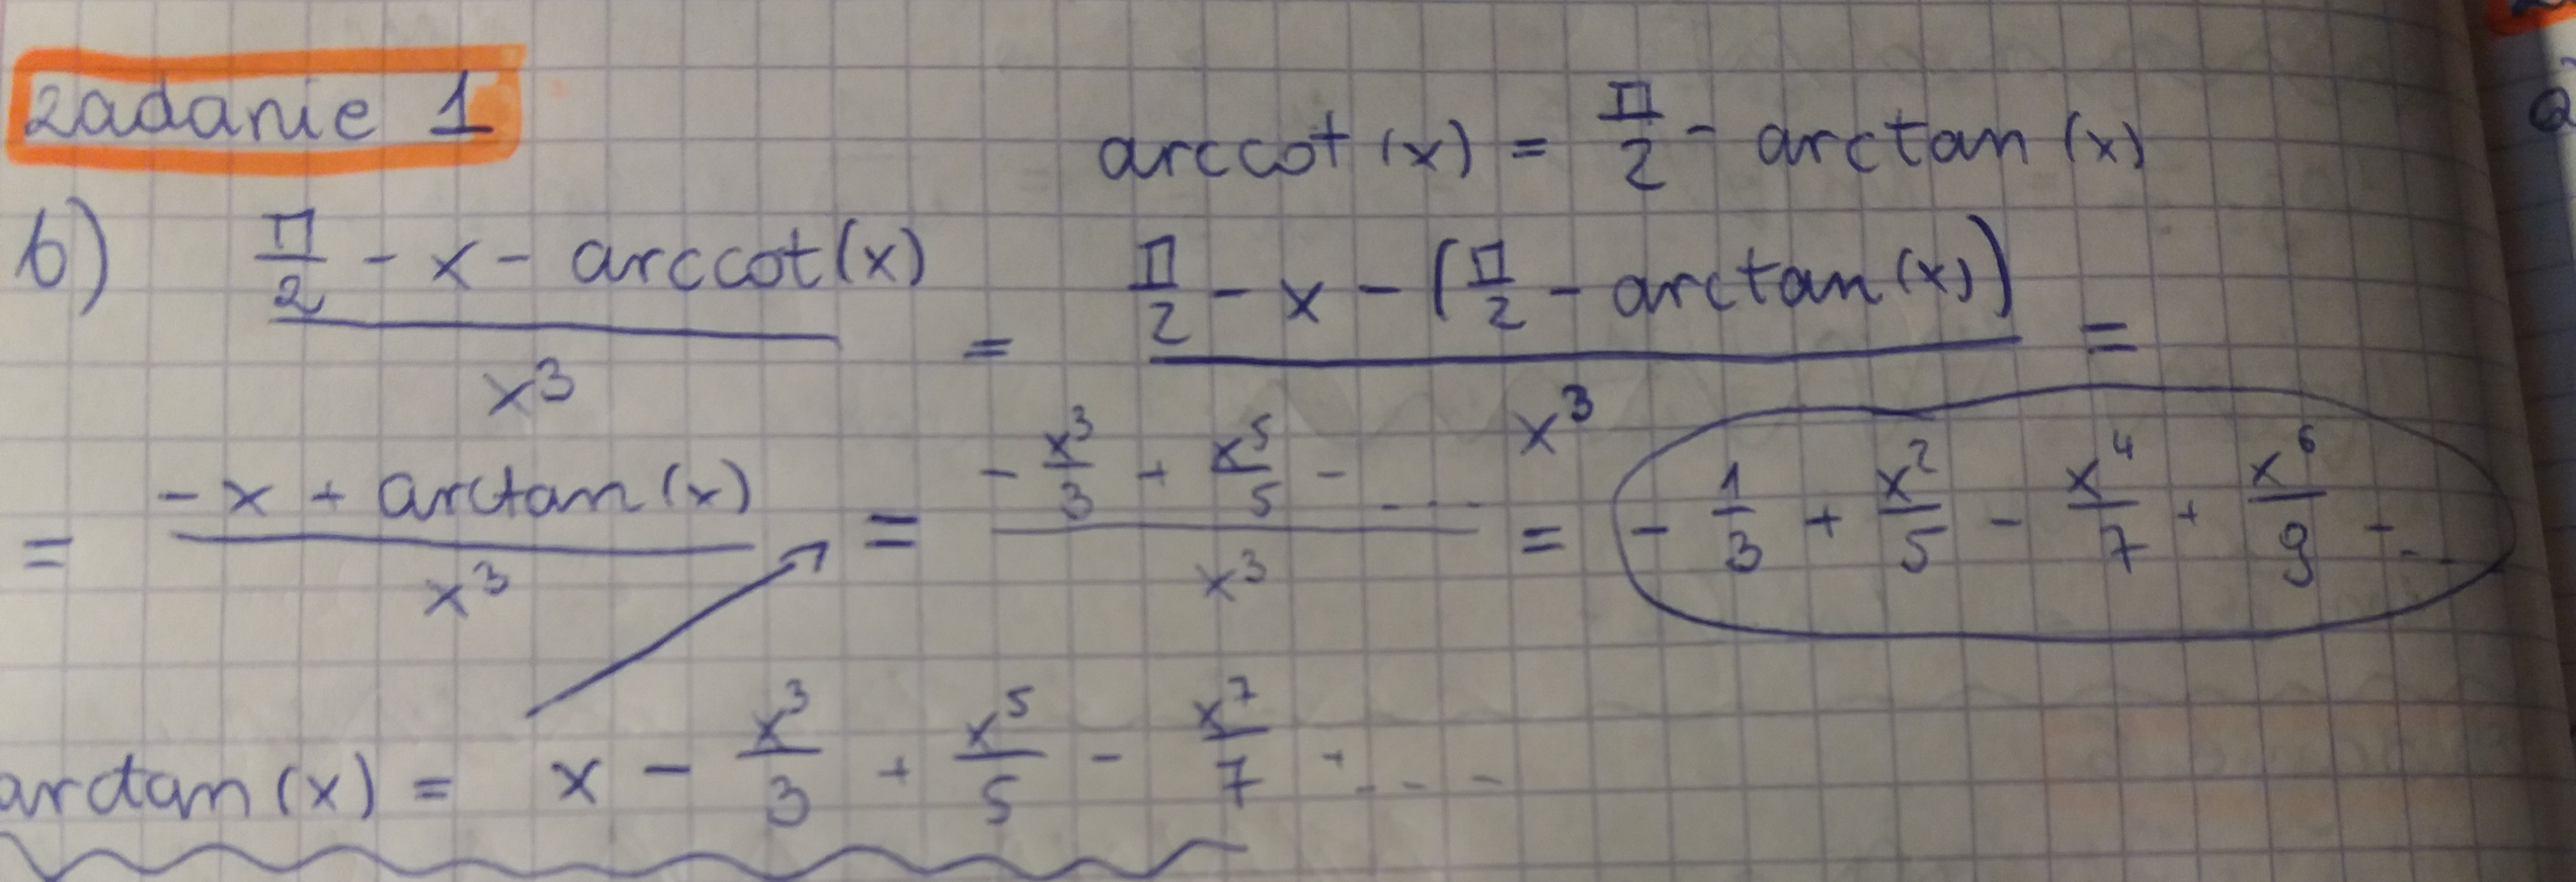 zadanie 1
arccot (x) = π/2 - arctan (x)
b) (π/2 - x - arccot(x)) / x³ = (π/2 - x - (π/2 - arctan(x))) / x³ =
= (-x + arctan(x)) / x³ = (- x³/3 + x⁵/5 - ....) / x³ = - 1/3 + x²/5 - x⁴/7 + x⁶/9 - ...
arctan(x) = x - x³/3 + x⁵/5 - x⁷/7 + ....